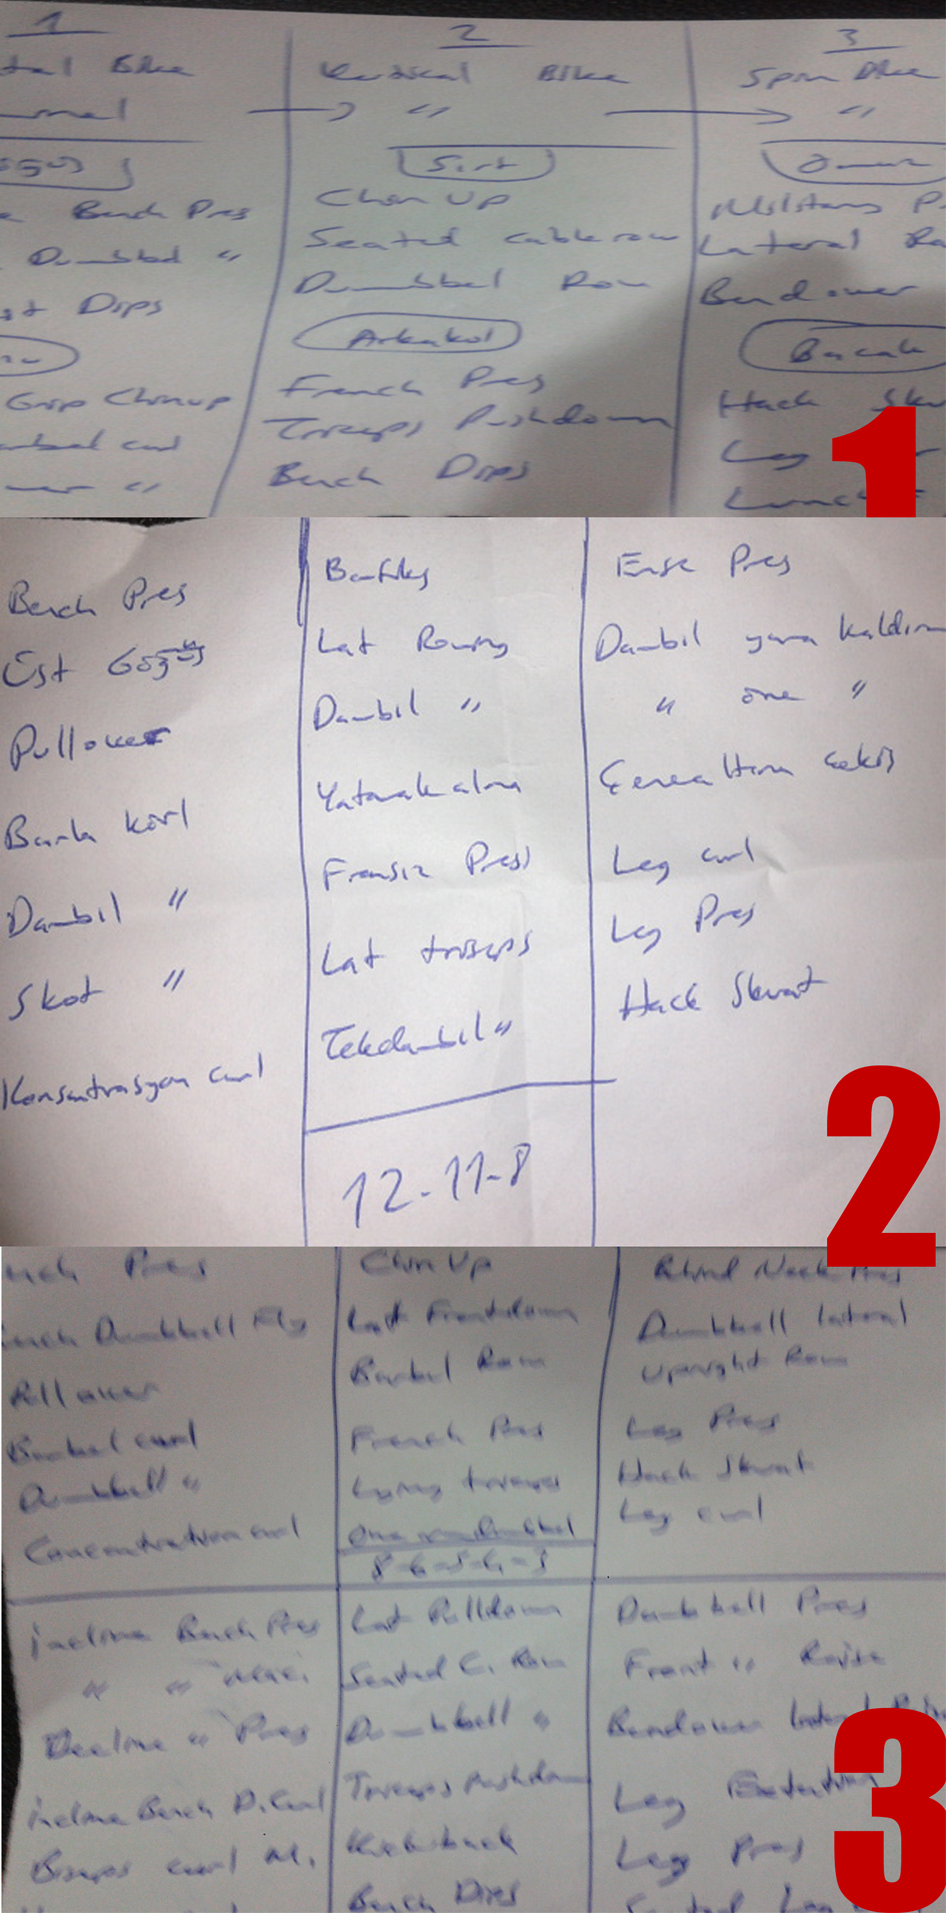 1
Bike
→
Bench Pres
Dumbbel "
Dips
Grip Chinup
curl
"
2
Vertical Bike
" →
Sırt
Chin Up
Seated cable row
Dumbbel Row
Arkakol
French Pres
Triceps Pushdown
Bench Dips
3
Spin Bike
"
Omuz
Military P
Lateral Ra
Bendover
Bacak
Hack Sk
Leg
1
Bench Pres
Üst Göğüs
Pullover
Barla körl
Dambıl "
Skot "
Konsantrasyon curl
Barfiks
Lat Rowing
Dambıl "
Yatarak alına
Fransız Press
Lat triseps
Tekdambıl "
12-11-8
Ense Pres
Dambıl yana kaldırm
" öne "
Çenealtına çekiş
Leg curl
Leg Pres
Hack Skuat
2
Pres
Dumbbell Fly
Pullover
Barbel curl
Dumbbell "
Concentration curl
Chin Up
Lat Frontdown
Barbel Row
French Pres
Lying triceps
One Dumbbel
8-6-5-4-3
Behind Neck Pres
Dumbbell lateral
Upright Row
Leg Pres
Hack Skuat
Leg curl
incline Bench Pres
" "
Decline " Pres
incline Bench D.Curl
Biseps curl M.
Lat Pulldown
Seated C. Row
Dumbbell "
Triceps Pushdown
Kickback
Bench Dips
Dumbbell Pres
Front " Raise
Bendover lateral
Leg Extention
Leg Pres
Seated Leg
3